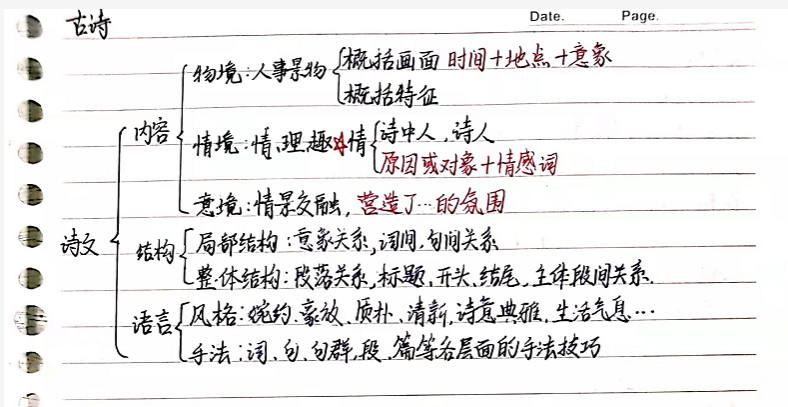 古诗
Date. Page.
物境：人事景物 概括画面 时间+地点+意象
概括特征
内容
情境：情、理、趣☆情 诗中人、诗人
原因或对象+情感词
意境：情景交融，营造了…的氛围
诗文
结构 局部结构：意象关系，词间，句间关系
整体结构：段落关系，标题、开头、结尾，主体段间关系.
语言 风格：婉约、豪放、质朴、清新，诗意典雅、生活气息…
手法：词、句、句群，段、篇等各层面的手法技巧